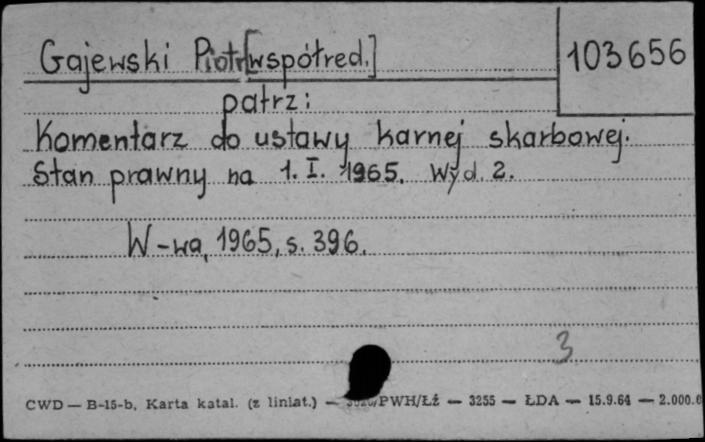 Gajewski Piotr [współred.]
103656
patrz:
Komentarz do ustawy karnej skarbowej.
Stan prawny na 1. I. 1965. Wyd. 2.
W-wa, 1965, s. 396.
3
CWD — B-15-b, Karta katal. (z liniat.) — PWH/Łź — 3255 — ŁDA — 15.9.64 — 2.000.0